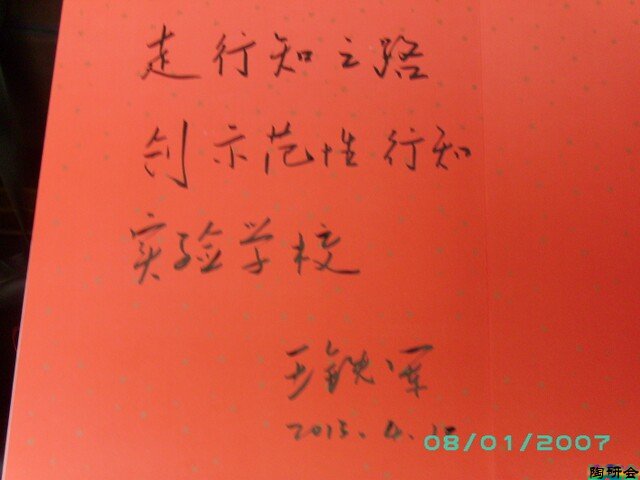 走行知之路
创示范性行知
实验学校
王铁军
2015.4.
08/01/2007
陶研会